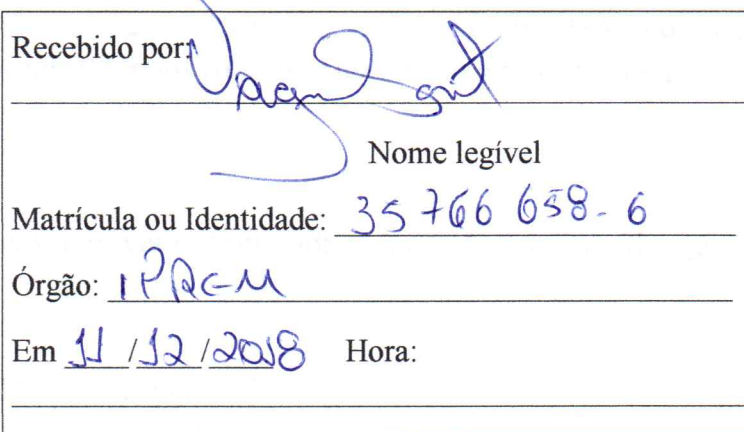 Recebido por:
Nome legível
Matrícula ou Identidade: 35 766 658-6
Órgão: IPREM
Em 11/12/2018 Hora: